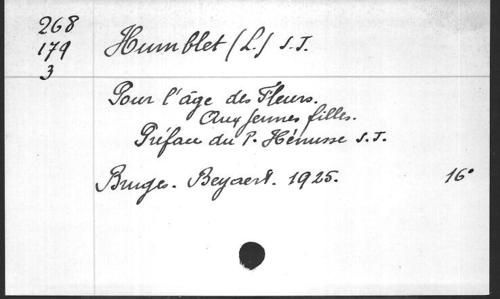 268
179
3
Humblet (L.) S.J.
Pour l'âge des Fleurs.
Aux Jeunes filles.
Préface du P. Hénusse S.J.
Bruges. Beyaert. 1925. 16°